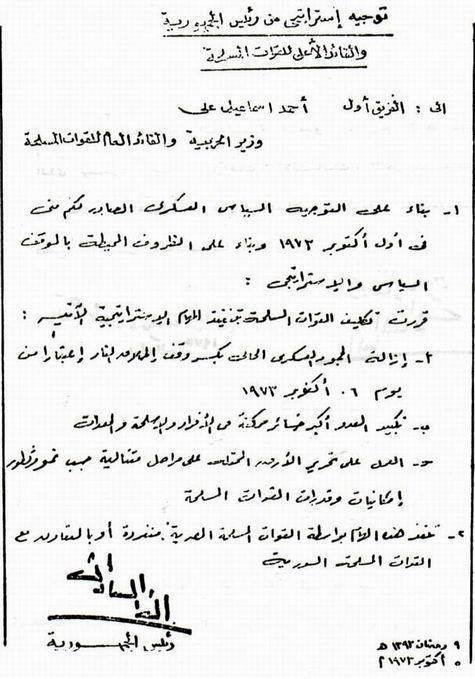 توجيه إستراتيجى من رئيس الجمهورية
والقائد الأعلى للقوات المسلحة
الى : الفريق أول أحمد اسماعيل على
وزير الحربية والقائد العام للقوات المسلحة
١- بناء على التوجيه السياسى العسكرى الصادر لكم منى
فى أول أكتوبر ١٩٧٣ وبناء على الظروف المحيطة بالموقف
السياسى والاستراتيجى :
قررت تكليف القوات المسلحة بتنفيذ المهام الاستراتيجية الآتيه :
أ- إزالة الجمود العسكرى الحالى بكسر وقف إطلاق النار إعتباراً من
يوم ٠٦ أكتوبر ١٩٧٣
ب- تكبيد العدو أكبر خسائر ممكنة فى الأفراد والأسلحة والمعدات
ج- العمل على تحرير الأرض المحتلة على مراحل متتالية حسب نمو وتطور
إمكانيات وقدرات القوات المسلحة
٢- تنفذ هذه المهام بواسطة القوات المسلحة المصرية منفردة أو بالتعاون مع
القوات المسلحة السورية
أنور السادات
رئيس الجمهورية
٩ رمضان ١٣٩٣ هـ
٥ أكتوبر ١٩٧٣ م